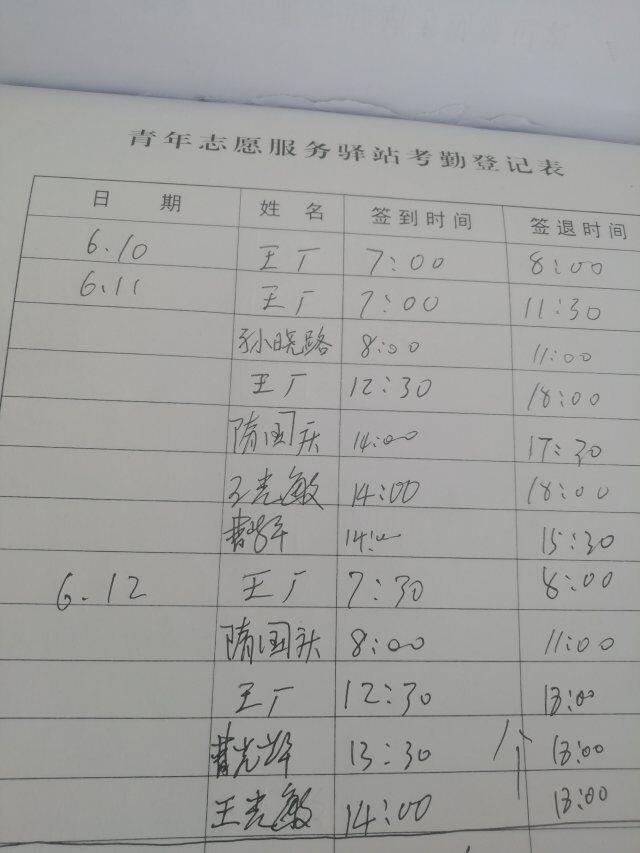 青年志愿服务驿站考勤登记表
日 期 姓 名 签到时间 签退时间
6.10 王厂 7:00 8:00
6.11 王厂 7:00 11:30
孙晓路 8:00 11:00
王厂 12:30 18:00
隋国庆 14:00 17:30
王光敏 14:00 18:00
曹 14:00 15:30
6.12 王厂 7:30 8:00
隋国庆 8:00 11:00
王厂 12:30 18:00
曹光 13:30 18:00
王光敏 14:00 18:00